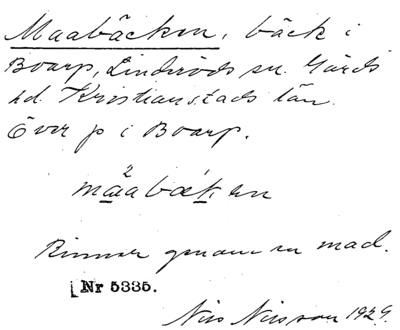 Maabäcken, bäck i
Boarp, Linderöds sn. Gärds
hd. Kristianstads län.
Över p i Boarp.
mä²abækən
Rinner genom en mad.
Nr 5335.
Nils Nilsson 1929.